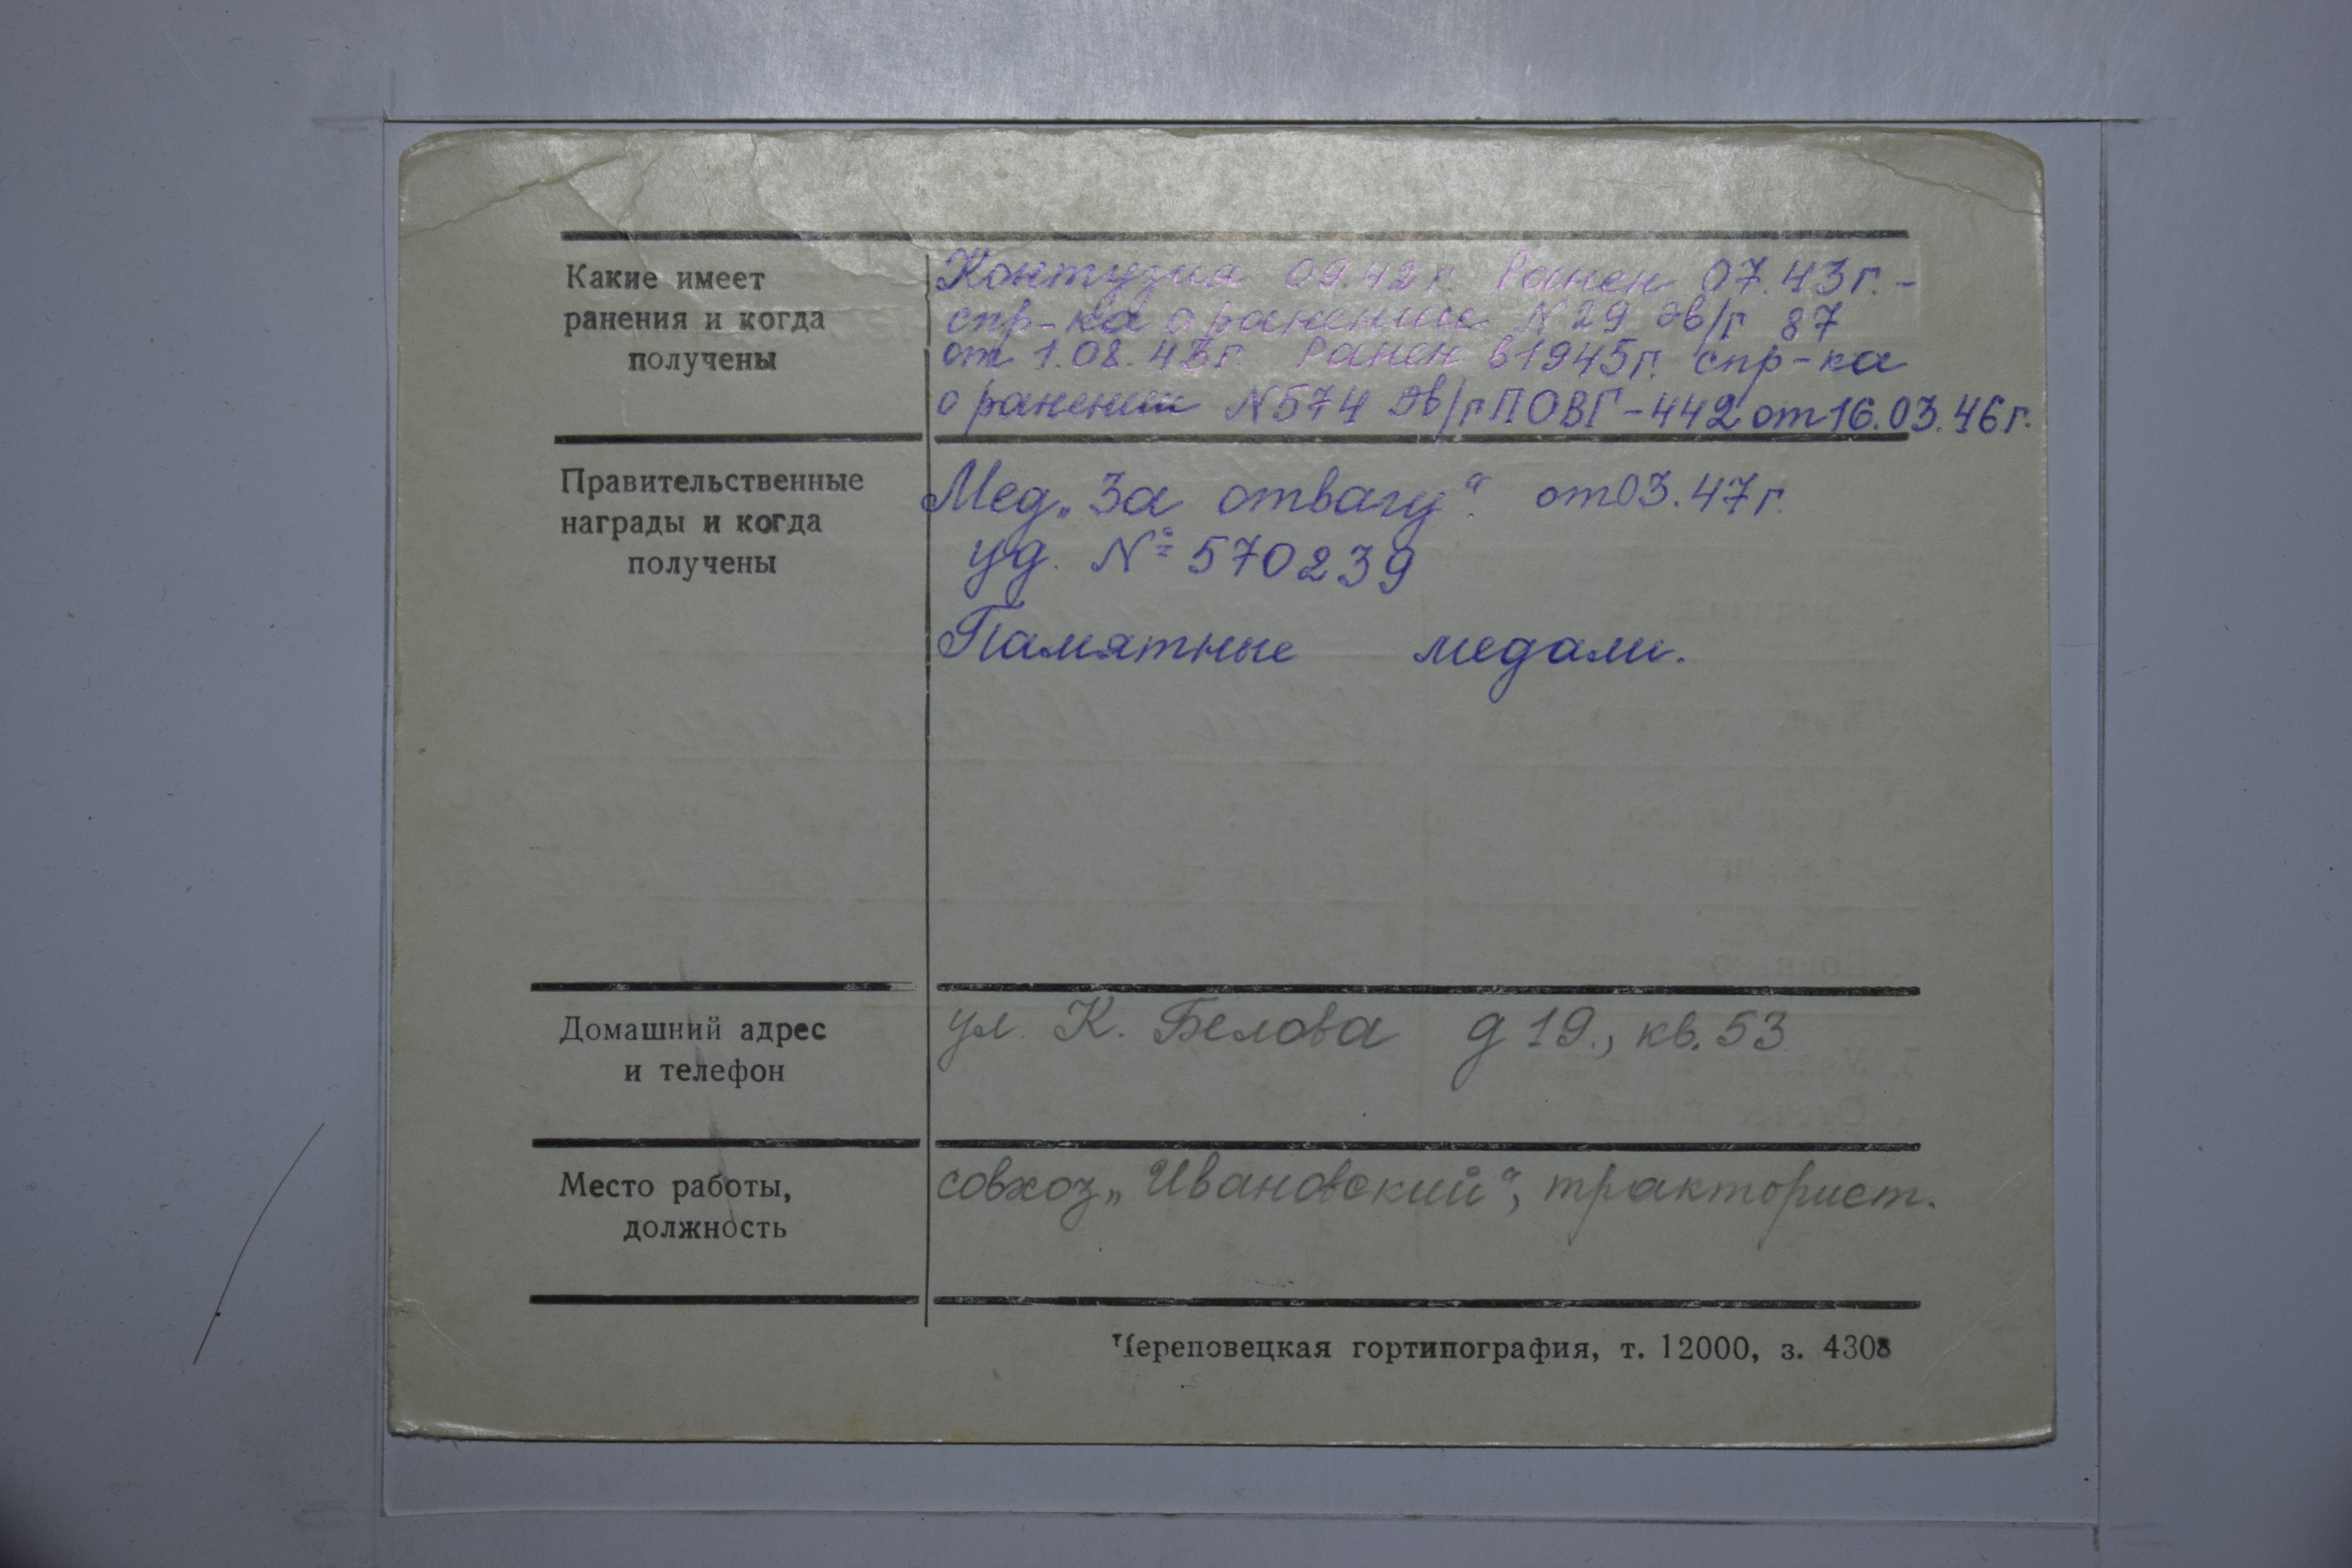 Какие имеет
ранения и когда
получены
Контузия 09.42 г. Ранен 07.43 г. -
спр-ка о ранении N 29 эв/г 87
от 1.08.43 г. Ранен в 1945 г. спр-ка
о ранении N 574 эв/г ПОВГ-442 от 16.03.46 г.
Правительственные
награды и когда
получены
Мед. „За отвагу“. от 03.47 г.
уд. № 570239
Памятные медали.
Домашний адрес
и телефон
ул. К. Белова д 19., кв. 53
Место работы,
должность
совхоз „Ивановский“, тракторист.
Череповецкая гортипография, т. 12000, з. 4308